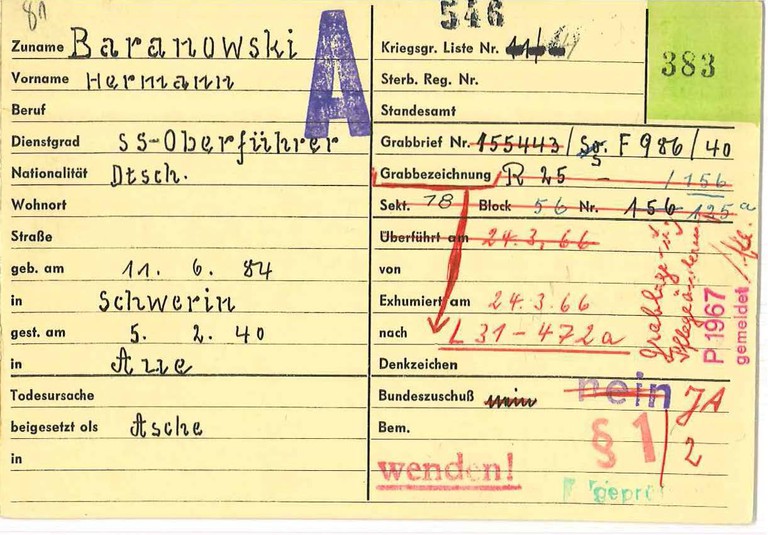 81
Zuname Baranowski
Vorname Hermann
Beruf
Dienstgrad SS-Oberführer
Nationalität Dtsch.
Wohnort
Straße
geb. am 11. 6. 84
in Schwerin
gest. am 5. 2. 40
in Aue
Todesursache
beigesetzt als Asche
in
A
546
383
Kriegsgr. Liste Nr.
Sterb. Reg. Nr.
Standesamt
Grabbrief Nr. 155443 / So. F 986/40
Grabbezeichnung R 25 - / 156
Sekt. 78 Block 56 Nr. 156 125 a
Überführt am 24.3.66
von
Exhumiert am 24.3.66
nach L 31-472a
Denkzeichen
Bundeszuschuß nein nein JA
Bem. § 1 2
wenden! gepr
P 1967
gemeldet